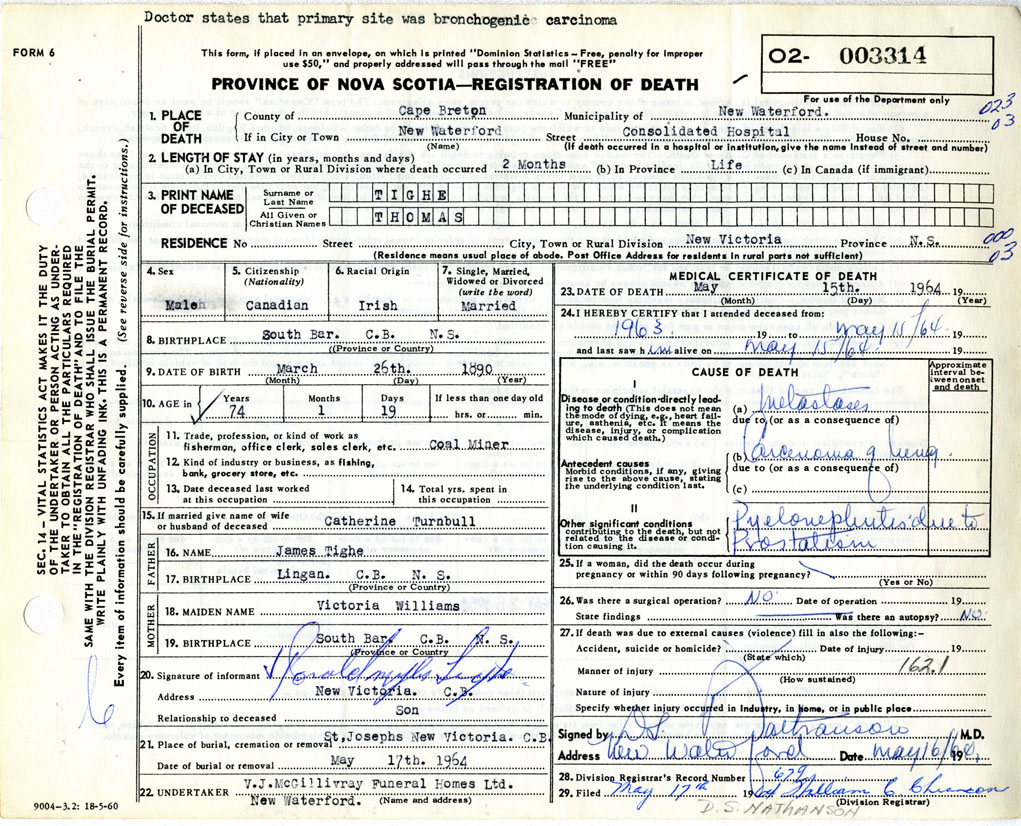 Doctor states that primary site was bronchogenic carcinoma
FORM 6
This form, if placed in an envelope, on which is printed "Dominion Statistics – Free, penalty for improper
use $50," and properly addressed will pass through the mail "FREE"
O2- 003314
PROVINCE OF NOVA SCOTIA—REGISTRATION OF DEATH
For use of the Department only
023
03
1. PLACE OF DEATH
County of Cape Breton Municipality of New Waterford.
If in City or Town New Waterford Street Consolidated Hospital House No.
(Name) (If death occurred in a hospital or institution, give the name instead of street and number)
2. LENGTH OF STAY (in years, months and days)
(a) In City, Town or Rural Division where death occurred 2 Months (b) In Province Life (c) In Canada (if immigrant)
3. PRINT NAME OF DECEASED
Surname or Last Name TIGHE
All Given or Christian Names THOMAS
RESIDENCE No Street City, Town or Rural Division New Victoria Province N.S.
(Residence means usual place of abode. Post Office Address for residents in rural parts not sufficient)
000
03
4. Sex
Male
5. Citizenship
(Nationality)
Canadian
6. Racial Origin
Irish
7. Single, Married,
Widowed or Divorced
(write the word)
Married
8. BIRTHPLACE South Bar. C.B. N.S.
(Province or Country)
9. DATE OF BIRTH March 26th. 1890
(Month) (Day) (Year)
10. AGE in Years Months Days If less than one day old
74 1 19 hrs. or min.
OCCUPATION
11. Trade, profession, or kind of work as
fisherman, office clerk, sales clerk, etc. Coal Miner
12. Kind of industry or business, as fishing,
bank, grocery store, etc.
13. Date deceased last worked
at this occupation
14. Total yrs. spent in
this occupation
15. If married give name of wife
or husband of deceased Catherine Turnbull
FATHER
16. NAME James Tighe
17. BIRTHPLACE Lingan. C.B. N. S.
(Province or Country)
MOTHER
18. MAIDEN NAME Victoria Williams
19. BIRTHPLACE South Bar. C.B. N. S.
(Province or Country)
20. Signature of informant
Address New Victoria. C.B.
Relationship to deceased Son
21. Place of burial, cremation or removal St,Josephs New Victoria. C.B
Date of burial or removal May 17th. 1964
22. UNDERTAKER V.J.McGillivray Funeral Homes Ltd.
New Waterford. (Name and address)
9004-3.2: 18-5-60
SEC. 14 – VITAL STATISTICS ACT MAKES IT THE DUTY
OF THE UNDERTAKER OR PERSON ACTING AS UNDER-
TAKER TO OBTAIN ALL THE PARTICULARS REQUIRED
IN THE "REGISTRATION OF DEATH" AND TO FILE THE
SAME WITH THE DIVISION REGISTRAR WHO SHALL ISSUE THE BURIAL PERMIT.
WRITE PLAINLY WITH UNFADING INK. THIS IS A PERMANENT RECORD.
Every item of information should be carefully supplied. (See reverse side for instructions.)
MEDICAL CERTIFICATE OF DEATH
23. DATE OF DEATH May 15th. 1964 19
(Month) (Day) (Year)
24. I HEREBY CERTIFY that I attended deceased from:
1963 19 to May 15/64 19
and last saw him alive on May 15/64. 19
CAUSE OF DEATH
Approximate
interval be-
tween onset
and death
I
Disease or condition directly lead-
ing to death (This does not mean
the mode of dying, e.g., heart fail-
ure, asthenia, etc. It means the
disease, injury, or complication
which caused death.)
(a) Metastases
due to (or as a consequence of)
Antecedent causes
Morbid conditions, if any, giving
rise to the above cause, stating
the underlying condition last.
(b) Carcenoma of
due to (or as a consequence of)
(c)
II
Other significant conditions
contributing to the death, but not
related to the disease or condi-
tion causing it.
Pyelonephritis due to
Prostatism
25. If a woman, did the death occur during
pregnancy or within 90 days following pregnancy?
(Yes or No)
26. Was there a surgical operation? NO Date of operation 19
State findings Was there an autopsy? NO
27. If death was due to external causes (violence) fill in also the following:–
Accident, suicide or homicide? Date of injury 19
(State which)
Manner of injury 162.1
(How sustained)
Nature of injury
Specify whether injury occurred in Industry, in home, or in public place
Signed by D.S. Nathanson M.D.
Address New Waterford Date May 16/64, 196
28. Division Registrar's Record Number
29. Filed May 17th 19 William C
(Division Registrar)
D. S. NATHANSON